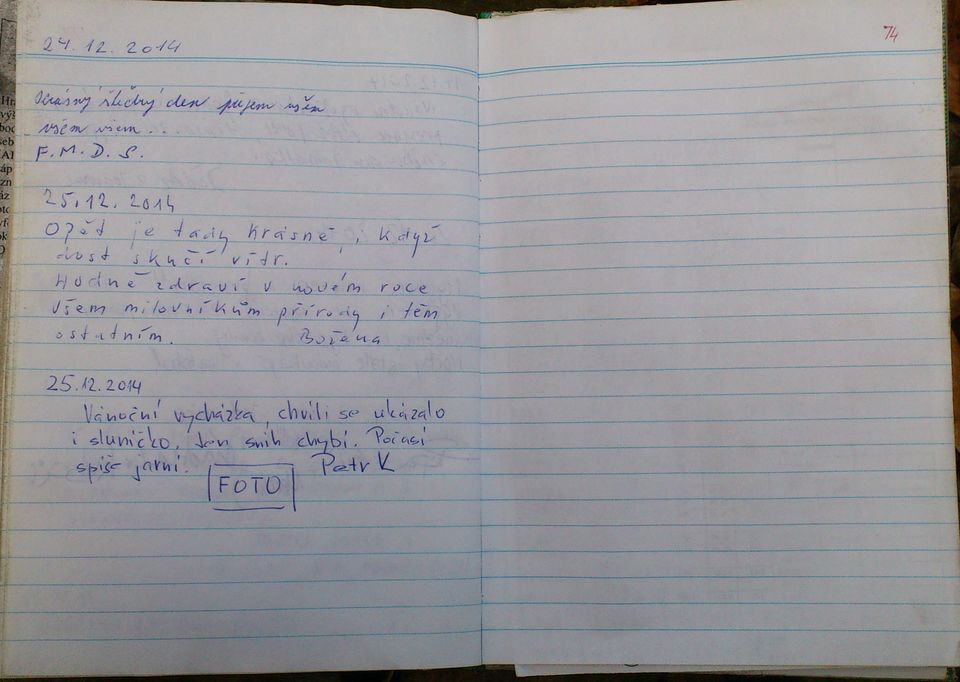 24.12.2014
Krásný štědrý den přejem všem
všem všem...
F.M.D.S.
25.12.2014
Opět je tady krásně, i když
dost skučí vítr.
Hodně zdraví v novém roce
všem milovníkům přírody i těm
ostatním. Božena
25.12.2014
Vánoční vycházka, chvíli se ukázalo
i sluníčko. Jen sníh chybí. Počasí
spíše jarní. Petr K
FOTO
74